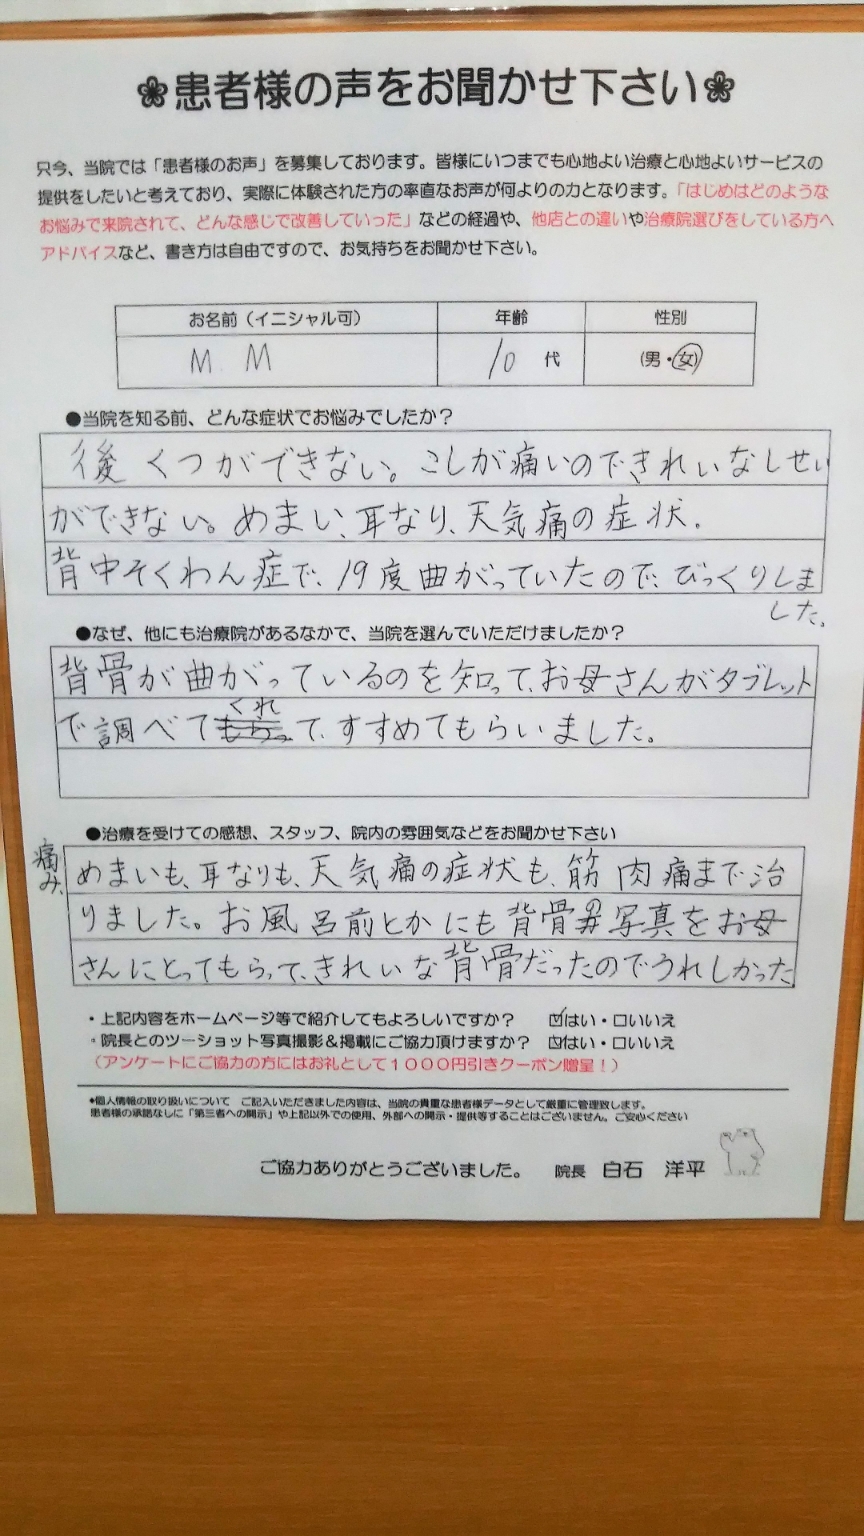 ❀患者様の声をお聞かせ下さい❀
只今、当院では「患者様のお声」を募集しております。皆様にいつまでも心地よい治療と心地よいサービスの
提供をしたいと考えており、実際に体験された方の率直なお声が何よりの力となります。「はじめはどのような
お悩みで来院されて、どんな感じで改善していった」などの経過や、他店との違いや治療院選びをしている方へ
アドバイスなど、書き方は自由ですので、お気持ちをお聞かせ下さい。
お名前（イニシャル可） 年齢 性別
M M 10 代 (男・女)
●当院を知る前、どんな症状でお悩みでしたか？
後くつができない。こしが痛いのできれいなしせい
ができない。めまい、耳なり、天気痛の症状。
背中そくわん症で、19度曲がっていたので、びっくりしま
した。
●なぜ、他にも治療院があるなかで、当院を選んでいただけましたか？
背骨が曲がっているのを知って、お母さんがタブレット
で調べてくれて、すすめてもらいました。
●治療を受けての感想、スタッフ、院内の雰囲気などをお聞かせ下さい
痛み、めまいも、耳なりも、天気痛の症状も、筋肉痛まで治
りました。お風呂前とかにも背骨の写真をお母
さんにとってもらって、きれいな背骨だったのでうれしかった
・上記内容をホームページ等で紹介してもよろしいですか？ ☑はい・□いいえ
・院長とのツーショット写真撮影＆掲載にご協力頂けますか？ ☑はい・□いいえ
（アンケートにご協力の方にはお礼として１０００円引きクーポン贈呈！）
●個人情報の取り扱いについて ご記入いただきました内容は、当院の貴重な患者様データとして厳重に管理致します。
患者様の承諾なしに「第三者への開示」や上記以外での使用、外部への開示・提供等することはございません。ご安心ください
ご協力ありがとうございました。 院長 白石 洋平